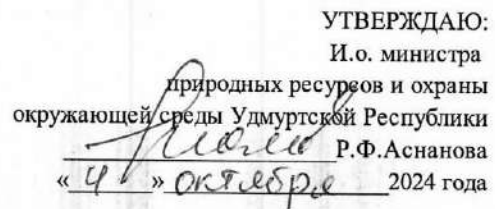 УТВЕРЖДАЮ:
И.о. министра
природных ресурсов и охраны
окружающей среды Удмуртской Республики
Р.Ф.Аснанова
« 4 » октября 2024 года